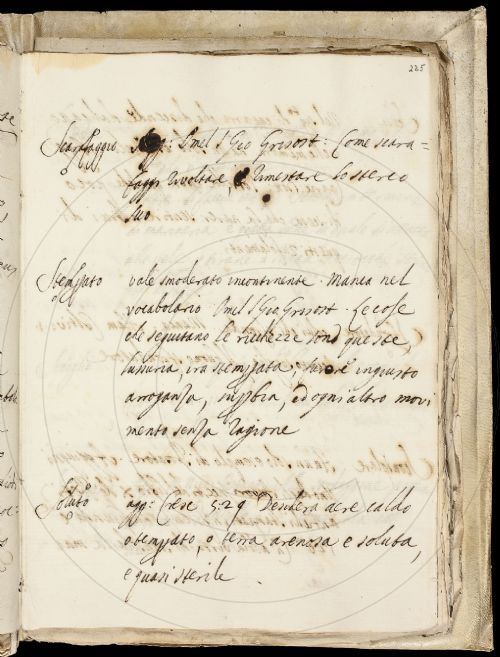 225
Scarafaggio agg: Omel S Gio Grisost: Come scara-
faggi rivoltare, e rimestare lo sterco
suo
Stemp̄ato vale smoderato incontinente. Manca nel
vocabolario. Omel S Gio Grisost. Le cose
che seguitano le ricchezze sono queste,
lussuria, ira stemp̄ata, furore ingiusto
arroganza, sup̄bia, ed ogni altro movi
mento senza ragione
Soluto agg: Cresc 5:29 Desidera aere caldo
o temp̄ato, o terra arenosa e soluta,
e quasi sterile